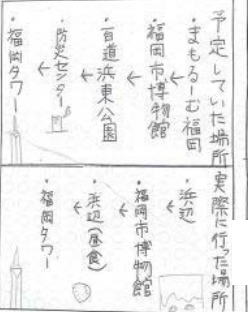 予定していた場所
・まもるーむ福岡
↓
・福岡市博物館
↓
・百道浜東公園
↓
・防災センター
↓
・福岡タワー
実際に行った場所
・浜辺
↓
・福岡市博物館
↓
・浜辺(昼食)
↓
・福岡タワー